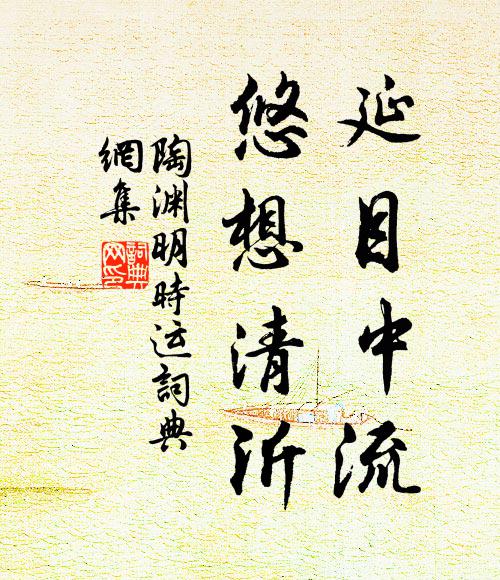 延目中流
悠想清沂
陶渊明時运詞典
網集
詞典网印